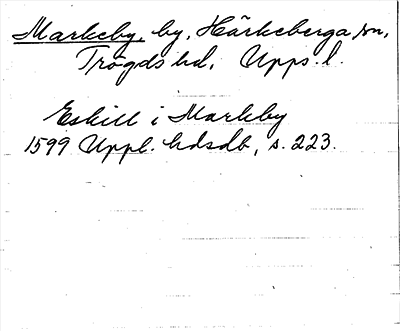 Markeby, by, Härkeberga sn,
Trögds hd, Upps. l.
Eskill i Markby
1599 Uppl. hdsdb, s. 223.